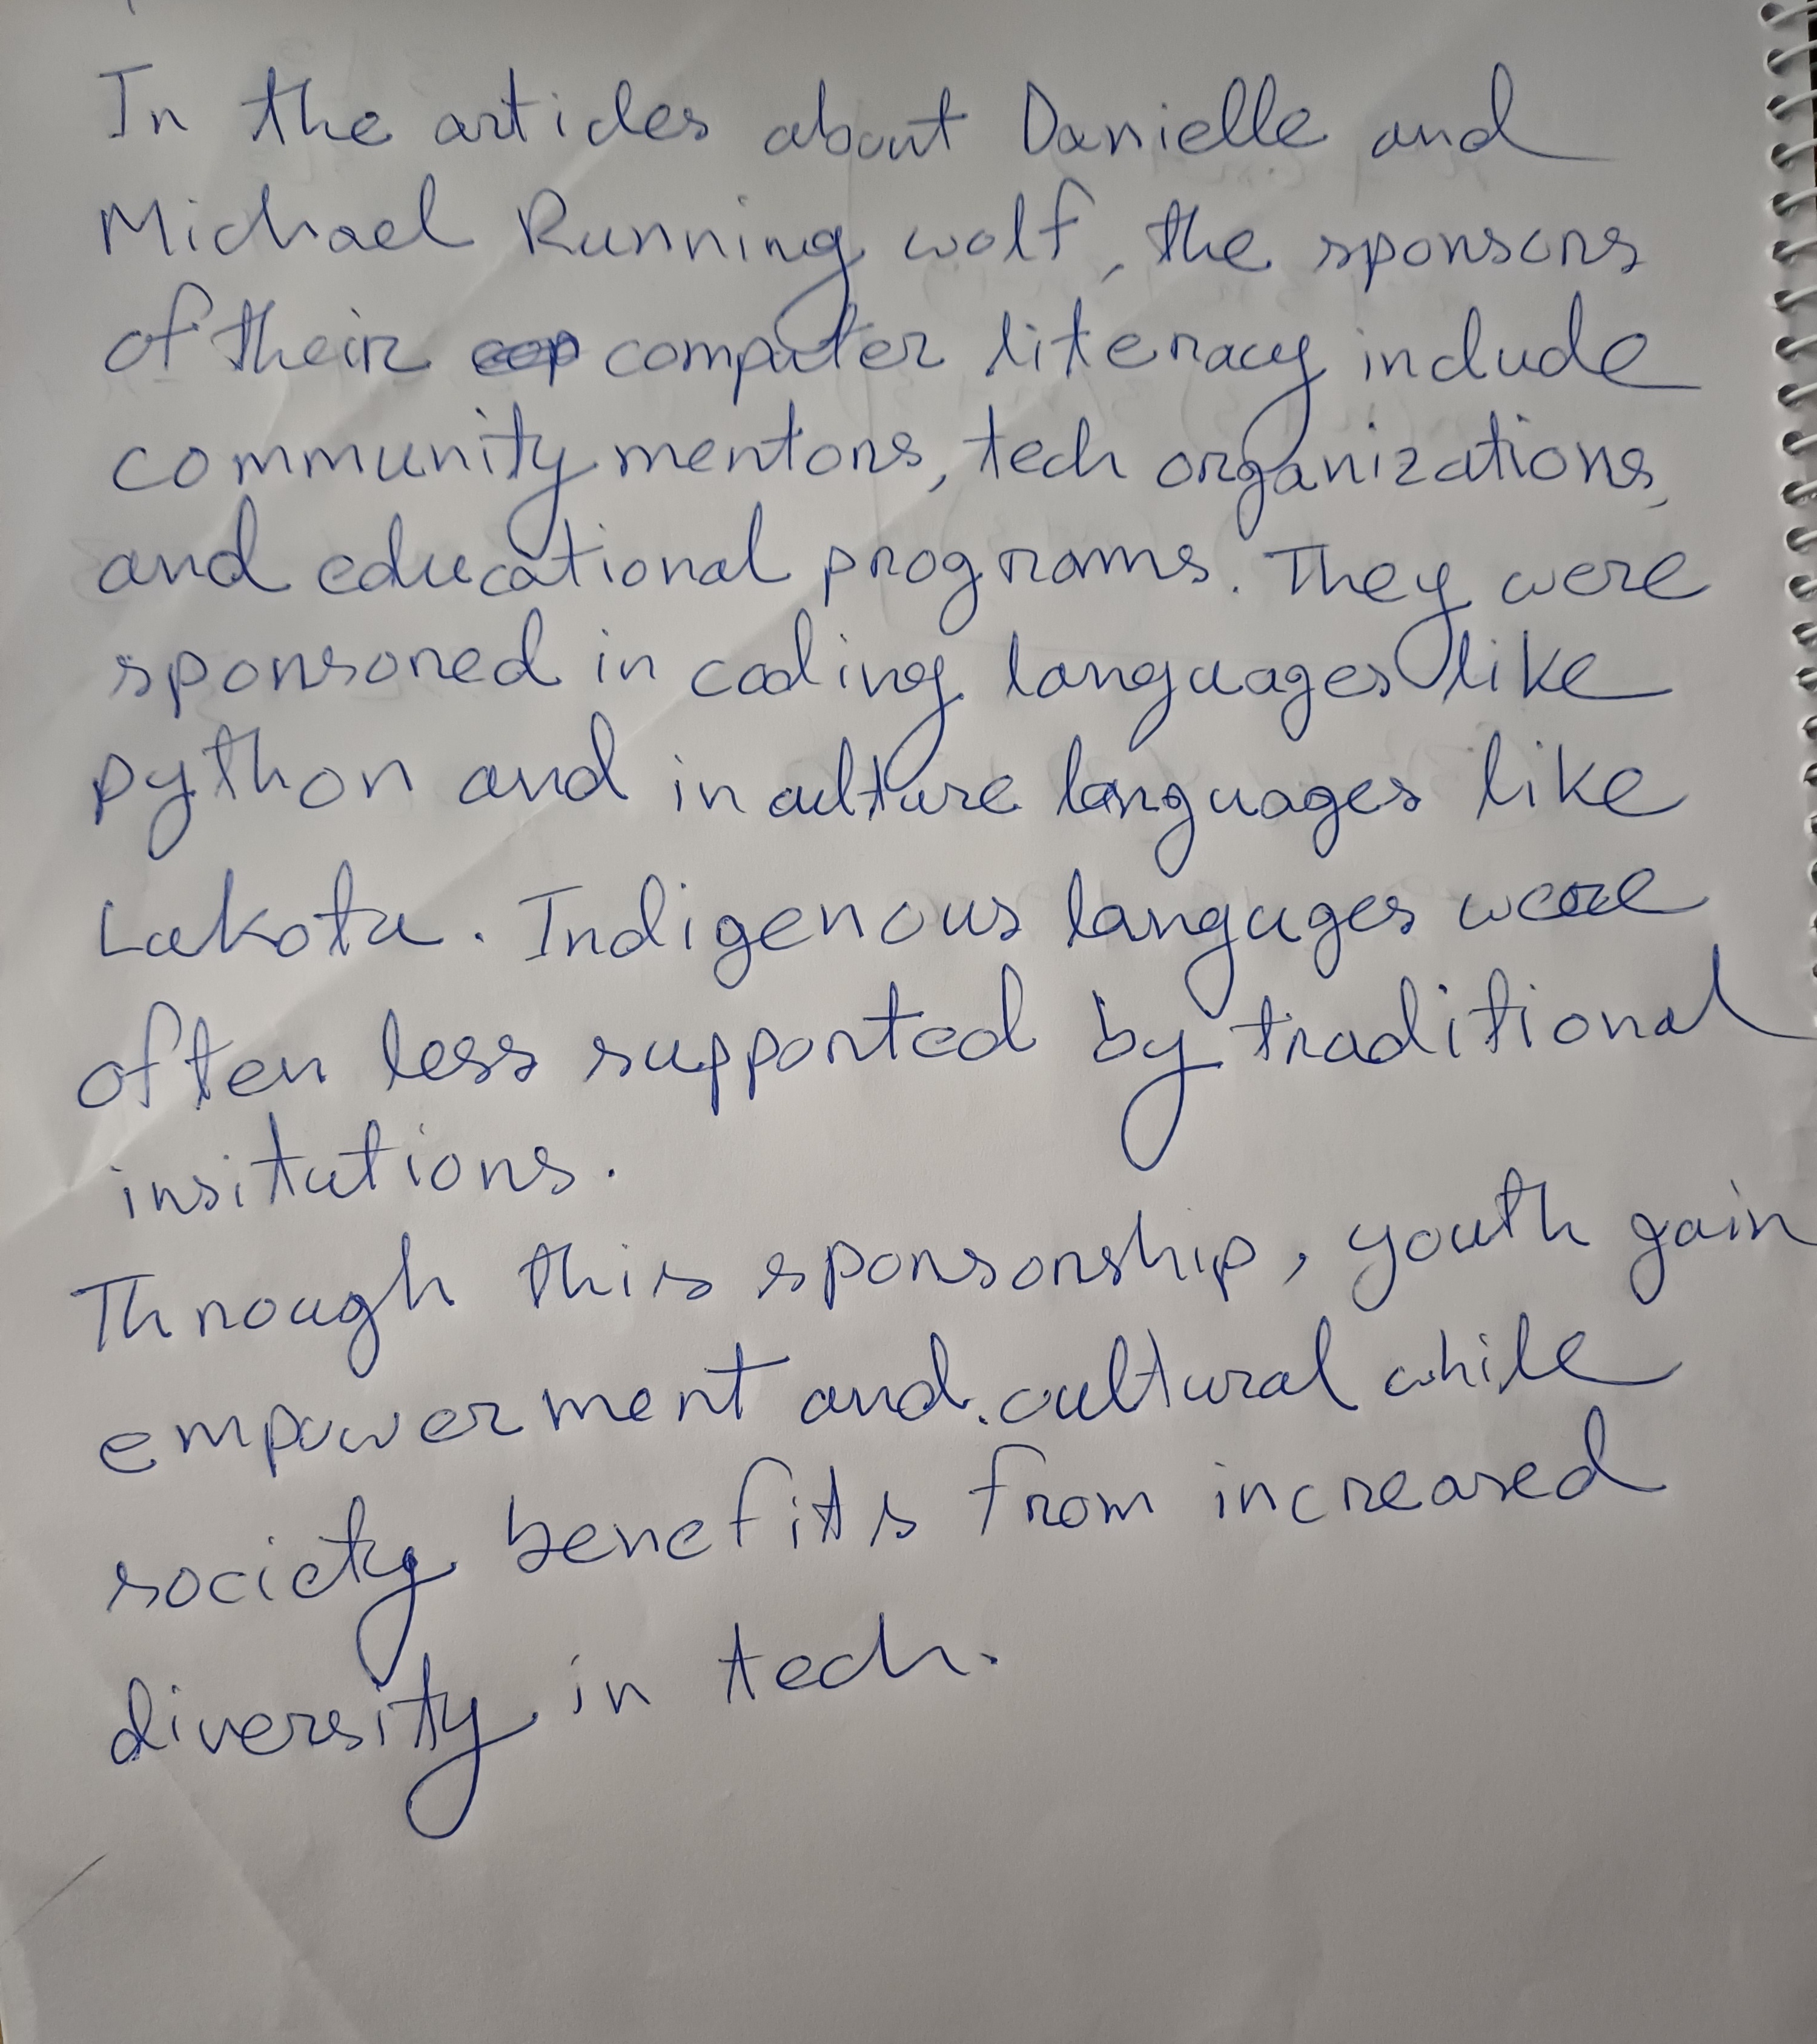 In the articles about Danielle and
Michael Running wolf, the sponsors
of their computer literacy include
community mentors, tech organizations,
and educational programs. They were
sponsored in coding languages like
python and in culture languages like
Lakota. Indigenous languges were
often less supported by traditional
insitutions.
Through this sponsorship, youth gain
empowerment and cultural while
society benefits from increased
diversity in tech.